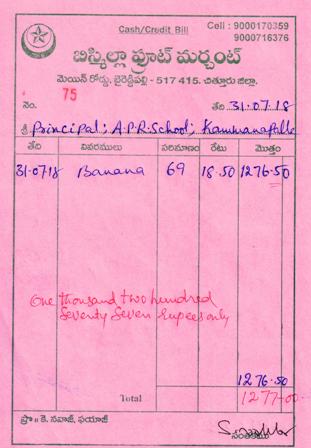 Cash/Credit Bill
Cell : 9000170359
9000716376
బిస్మిల్లా ఫ్రూట్ మర్చంట్
మెయిన్ రోడ్డు, బైరెడ్డిపల్లి - 517 415. చిత్తూరు జిల్లా.
నెం. 75 తేది 31.07.18
శ్రీ Principal; A.P.R.School; Kammanapalle
తేది వివరములు పరిమాణం రేటు మొత్తం
31-07-18 Banana 69 18.50 1276.50
One thousand two hundred
Seventy Seven rupees only
1276.50
Total 1277-00
ప్రొ॥ కె. నవాజ్, ఫయాజ్
సంతకము